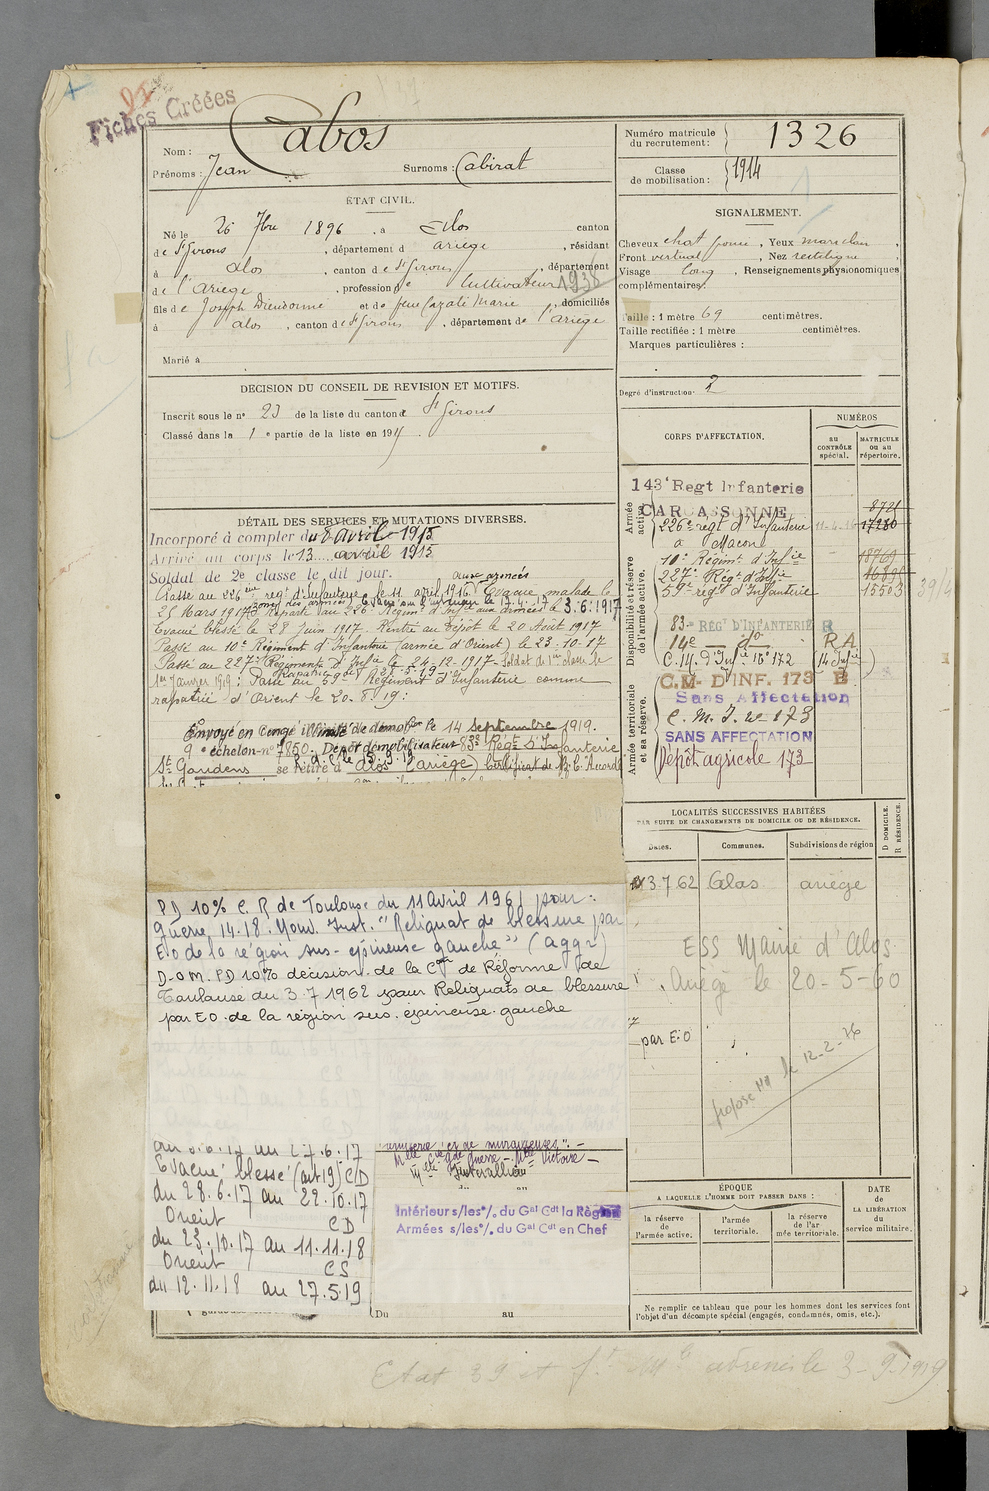 Fiches Créées
Nom : Cabos
Prénoms : Jean Surnoms : Cabirat
Numéro matricule du recrutement : 1326
Classe de mobilisation : 1914
ÉTAT CIVIL.
Né le 26 7bre 1896, à Alos canton
de St Girons, département d ariège, résidant
à alos, canton de St Girons, département
de l'ariège, profession de Cultivateur 1938
fils de Joseph Dieudonné et de feue Cazalé Marie, domiciliés
à alos, canton de St Girons, département de l'ariège
Marié à
SIGNALEMENT.
Cheveux chat foncé, Yeux marr clair,
Front vertical, Nez rectiligne,
Visage long, Renseignements physionomiques
complémentaires :
Taille : 1 mètre 69 centimètres.
Taille rectifiée : 1 mètre centimètres.
Marques particulières :
Degré d'instruction : 2
DÉCISION DU CONSEIL DE REVISION ET MOTIFS.
Inscrit sous le n° 23 de la liste du canton de St Girons
Classé dans la 1e partie de la liste en 191
DÉTAIL DES SERVICES ET MUTATIONS DIVERSES.
Incorporé à compter du 8 avril 1915
Arrivé au corps le 13 avril 1915
Soldat de 2e classe le dit jour.
aux armées
Passé au 226me regt d'Infanterie le 11 avril 1916. Évacué malade le
25 Mars 1917
3.6.1917
Evacué blessé le 28 Juin 1917. Rentré au Dépôt le 20 Août 1917
Passé au 10e Régiment d'Infanterie (armée d'Orient) le 23-10-17
Passé au 227e Régiment d'Infie le 24-12-1917 - Soldat de 1re classe le
1er Janvier 1919 : Passé au 59e Régiment d'Infanterie comme
rapatrié d'Orient le 20.8.19 :
Envoyé en congé illimité de démobon le 14 Septembre 1919.
9e échelon n° 7850. Dépôt démobilisateur 83e Regt D'Infanterie
St Gaudens se retire à Alos (ariège) Certificat de B. C. Accordé
CORPS D'AFFECTATION.
NUMÉROS
au CONTRÔLE spécial.
MATRICULE ou au répertoire.
Armée active.
Disponibilité et réserve de l'armée active.
Armée territoriale et sa réserve.
143e Regt Infanterie
CARCASSONNE 8721
226e regt d'Infanterie 11-4-16 17280
à Macon
10e Régimt d'Infie 18769
227e Régt d'Infie
59e regt d'Infanterie 15503 39/4
83e RÉGt D'INFANTERIE R
14e do RA
C.14. d'Infie 16e 172 (14 Infie)
C.M. D'INF. 173 B
Sans Affectation
C. M. I. n° 173
SANS AFFECTATION
Dépôt agricole 173
LOCALITÉS SUCCESSIVES HABITÉES
PAR SUITE DE CHANGEMENTS DE DOMICILE OU DE RÉSIDENCE.
Dates. Communes. Subdivisions de région D DOMICILE. R RÉSIDENCE.
3.7.62 Alos ariège
ESS Mairie d'Alos
Ariège le 20-5-60
par E.O
proposé MM le 12-2-76
PD 10% C. R de Toulouse du 11 Avril 1961 pour :
guerre 14.18. Nouv. Inst. "Reliquat de blessure par
E.O de la région sus-épineuse gauche" (aggr)
D.O.M. PD 10% décision de la Con de Réforme de
Toulouse du 3.7.1962 pour Reliquats de blessure
par EO. de la région sus. épineuse. gauche
du 3.6.17 au 27.6.17
Evacué blessé (art 19) CD
du 28.6.17 au 22.10.17
Orient CD
du 23.10.17 au 11.11.18
Orient CS
du 12.11.18 au 27.5.19
Intérieur s/les °/. du Gal Cdt la Région
Armées s/les °/. du Gal Cdt en Chef
Du au
ÉPOQUE
A LAQUELLE L'HOMME DOIT PASSER DANS :
la réserve de l'armée active.
l'armée territoriale.
la réserve de l'armée territoriale.
DATE DE LA LIBÉRATION du service militaire.
Ne remplir ce tableau que pour les hommes dont les services font
l'objet d'un décompte spécial (engagés, condamnés, omis, etc.).
Etat 39 et
3-9-1919